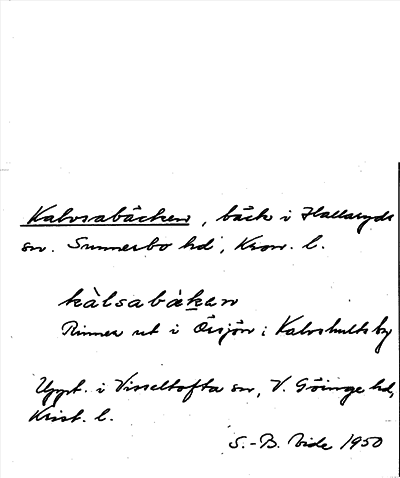 Kalvsabäcken, bäck i Hallaryds
sn. Sunnerbo hd, Kron. l.
kàlsabàken
Rinner ut i Örsjön i Kalvshults by
Uppt. i Visseltofta sn, V. Göinge hd,
Krist. l.
S.-B. Vide 1950